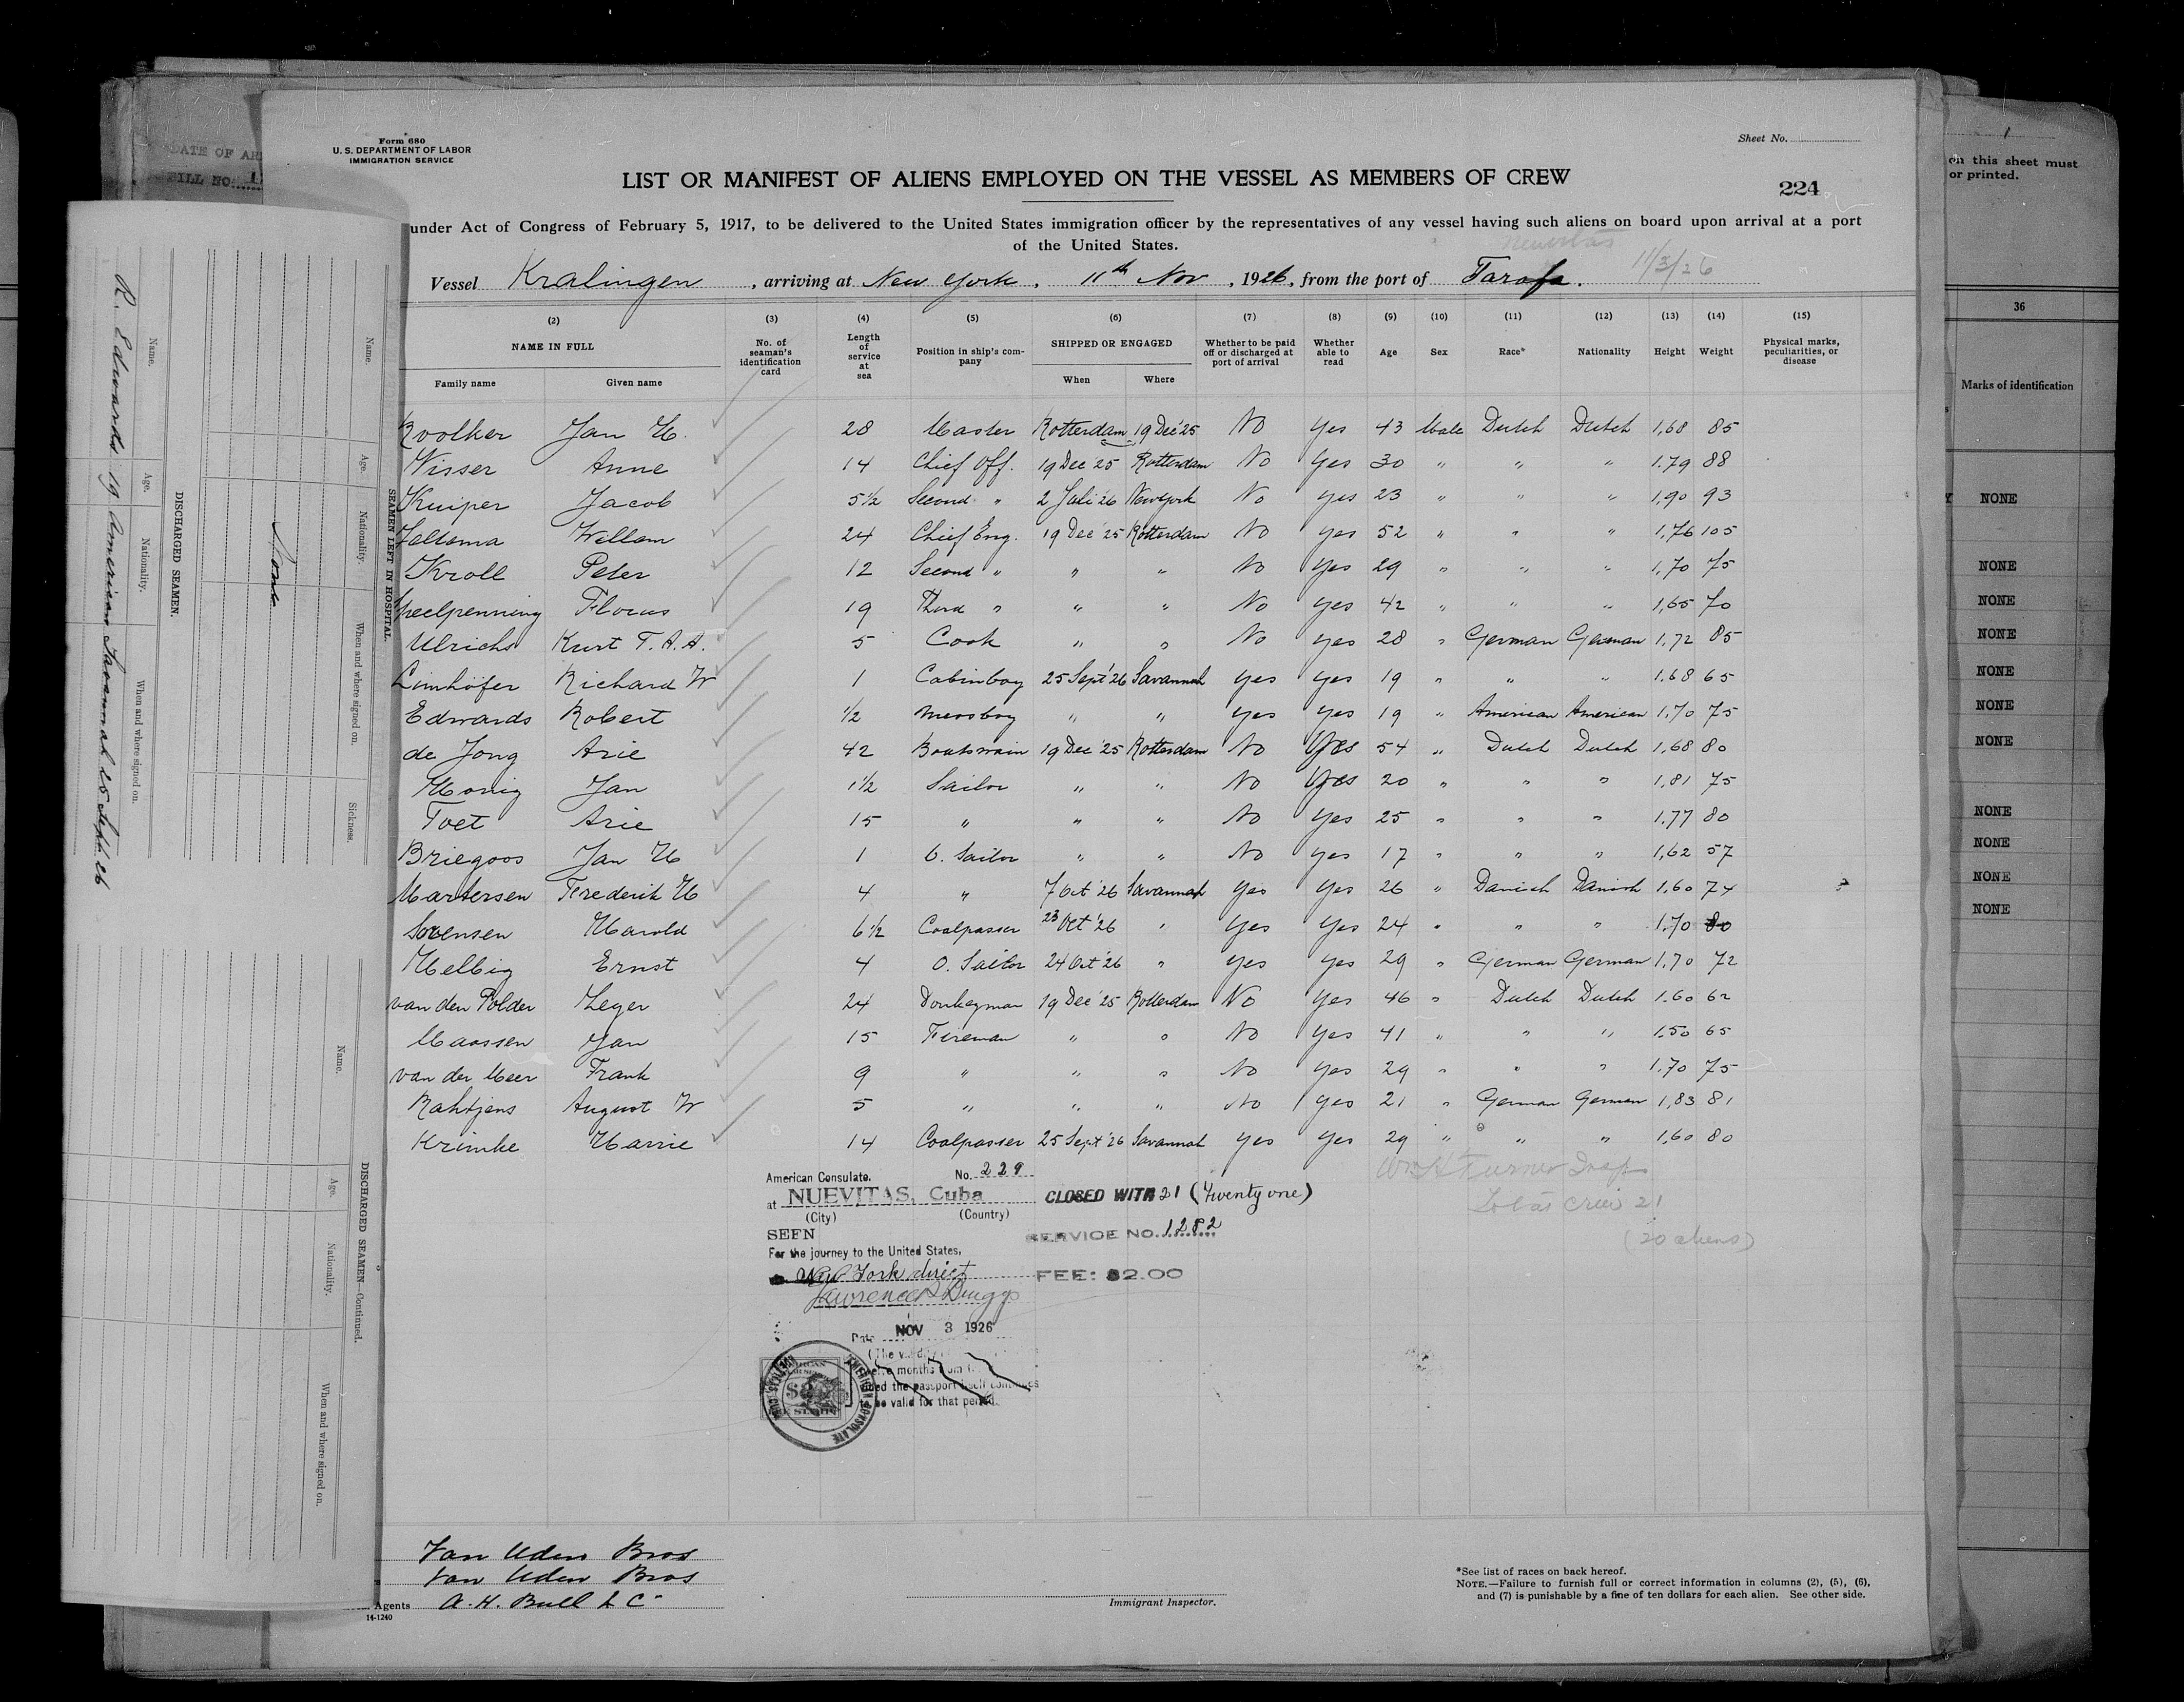 Form 680
U. S. DEPARTMENT OF LABOR
IMMIGRATION SERVICE
Sheet No.
LIST OR MANIFEST OF ALIENS EMPLOYED ON THE VESSEL AS MEMBERS OF CREW
224
under Act of Congress of February 5, 1917, to be delivered to the United States immigration officer by the representatives of any vessel having such aliens on board upon arrival at a port
of the United States.
Nuevitas 11/3/26
Vessel Kralingen, arriving at New York, 11th Nov, 1926, from the port of Tarafa.
(2) (3) (4) (5) (6) (7) (8) (9) (10) (11) (12) (13) (14) (15)
NAME IN FULL
Family name Given name
No. of seaman's identification card
Length of service at sea
Position in ship's company
SHIPPED OR ENGAGED
When Where
Whether to be paid off or discharged at port of arrival
Whether able to read
Age
Sex
Race*
Nationality
Height
Weight
Physical marks, peculiarities, or disease
Jan H. 28 Master Rotterdam 19 Dec '25 No Yes 43 Male Dutch Dutch 1,68 85
Visser Anne 14 Chief Off. 19 Dec '25 Rotterdam No Yes 30 " " " 1.79 88
Kuiper Jacob 5½ Second " 2 Juli '26 New York No Yes 23 " " " 1,90 93
Willem 24 Chief Eng. 19 Dec '25 Rotterdam No Yes 52 " " " 1,76 105
Kroll Peter 12 Second " " " No Yes 29 " " " 1,70 75
Florus 19 Third " " " No Yes 42 " " " 1,65 70
Ulrichs Kurt T. A. A. 5 Cook " " No Yes 28 " German German 1,72 85
Limhöfer Richard W 1 Cabinboy 25 Sept '26 Savannah Yes Yes 19 " " " 1.68 65
Edwards Robert ½ Messboy " " Yes Yes 19 " American American 1,70 75
de Jong Arie 42 Boatswain 19 Dec '25 Rotterdam No Yes 54 " Dutch Dutch 1,68 80
Honig Jan 1½ Sailor " " No Yes 20 " " " 1,81 75
Toet Arie 15 " " " No Yes 25 " " " 1.77 80
Briegoos Jan H 1 O. Sailor " " No Yes 17 " " " 1,62 57
Martersen Frederik H 4 " 7 Oct '26 Savannah Yes Yes 26 " Danish Danish 1,60 74
Sorensen Harold 6½ Coalpasser 23 Oct '26 " Yes Yes 24 " " " 1.70 80
Helbig Ernst 4 O. Sailor 24 Oct '26 " Yes Yes 29 " German German 1,70 72
van den Polder Leger 24 Donkeyman 19 Dec '25 Rotterdam No Yes 46 " Dutch Dutch 1.60 62
Maassen Jan 15 Fireman " " No Yes 41 " " " 1.50 65
van der Meer Frank 9 " " " No Yes 29 " " " 1.70 75
Rahtjens August W 5 " " " No Yes 21 " German German 1,83 81
Krimke Harrie 14 Coalpasser 25 Sept '26 Savannah Yes Yes 29 " " " 1,60 80
American Consulate. No. 229
at NUEVITAS, Cuba
(City) (Country)
SEEN
For the journey to the United States,
New York direct
Lawrence P. Briggs
Date NOV 3 1926
months from
the passport itself continues
be valid for that period.
AMERICAN CONSULATE
CLOSED WITH 21 (Twenty one)
SERVICE NO. 1282
FEE: $2.00
Wm H Turner Insp
Total crew 21
(20 aliens)
Van Uden Bros
Van Uden Bros
Agents A. H. Bull & Co
14-1240
Immigrant Inspector.
*See list of races on back hereof.
NOTE.—Failure to furnish full or correct information in columns (2), (5), (6),
and (7) is punishable by a fine of ten dollars for each alien. See other side.
DATE OF
BILL NO. 1
SEAMEN LEFT IN HOSPITAL.
Name. Age. Nationality. When and where signed on. Sickness.
None
DISCHARGED SEAMEN.
Name. Age. Nationality. When and where signed on.
R. Edwards 19 American Savannah 25 Sept. 26
DISCHARGED SEAMEN—Continued.
Name. Age. Nationality. When and where signed on.
1
on this sheet must
or printed.
36
Marks of identification
NONE
NONE
NONE
NONE
NONE
NONE
NONE
NONE
NONE
NONE
NONE